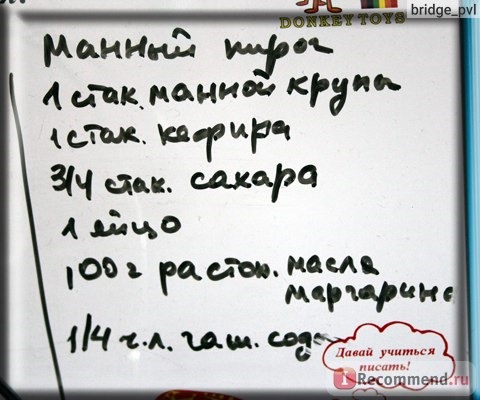 bridge_pvl
DONKEY TOYS
Манный пирог
1 стак. манной крупы
1 стак. кефира
3/4 стак. сахара
1 яйцо
100 г растоп. масла
маргарина
1/4 ч.л. гаш. соды
Давай учиться
писать!
iRecommend.ru